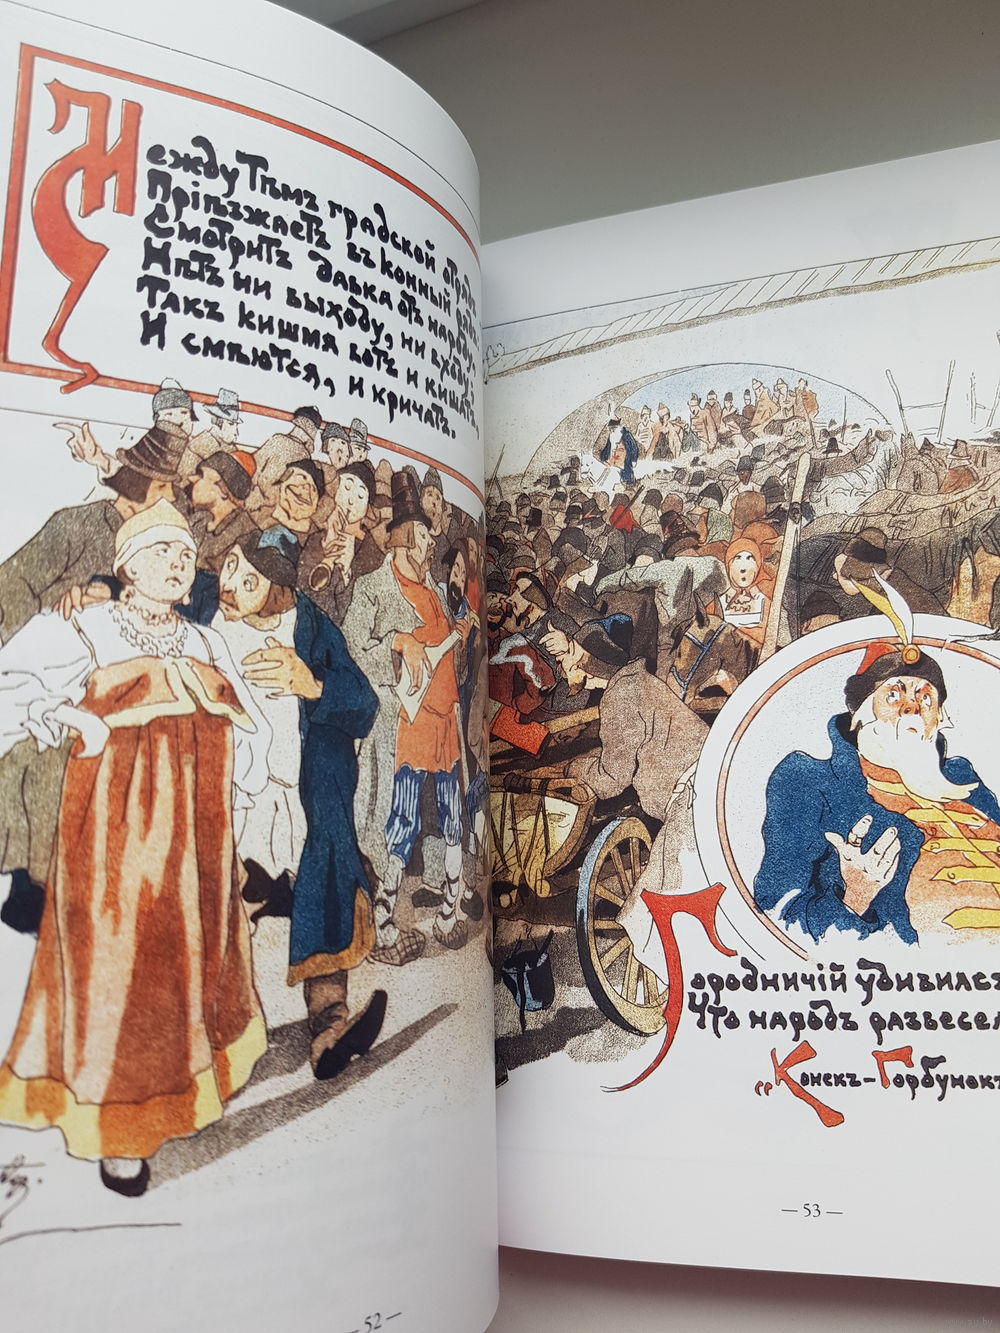 Между тѣмъ градской отрядъ
Пріѣзжаетъ въ конный рядъ
Смотритъ давка отъ народу,
Нѣтъ ни выходу, ни входу;
Такъ кишмя вотъ и кишатъ,
И смѣются, и кричатъ.
— 52 —
Городничій удивилсѧ
Что народъ развесел
„Конекъ-Горбунокъ
— 53 —